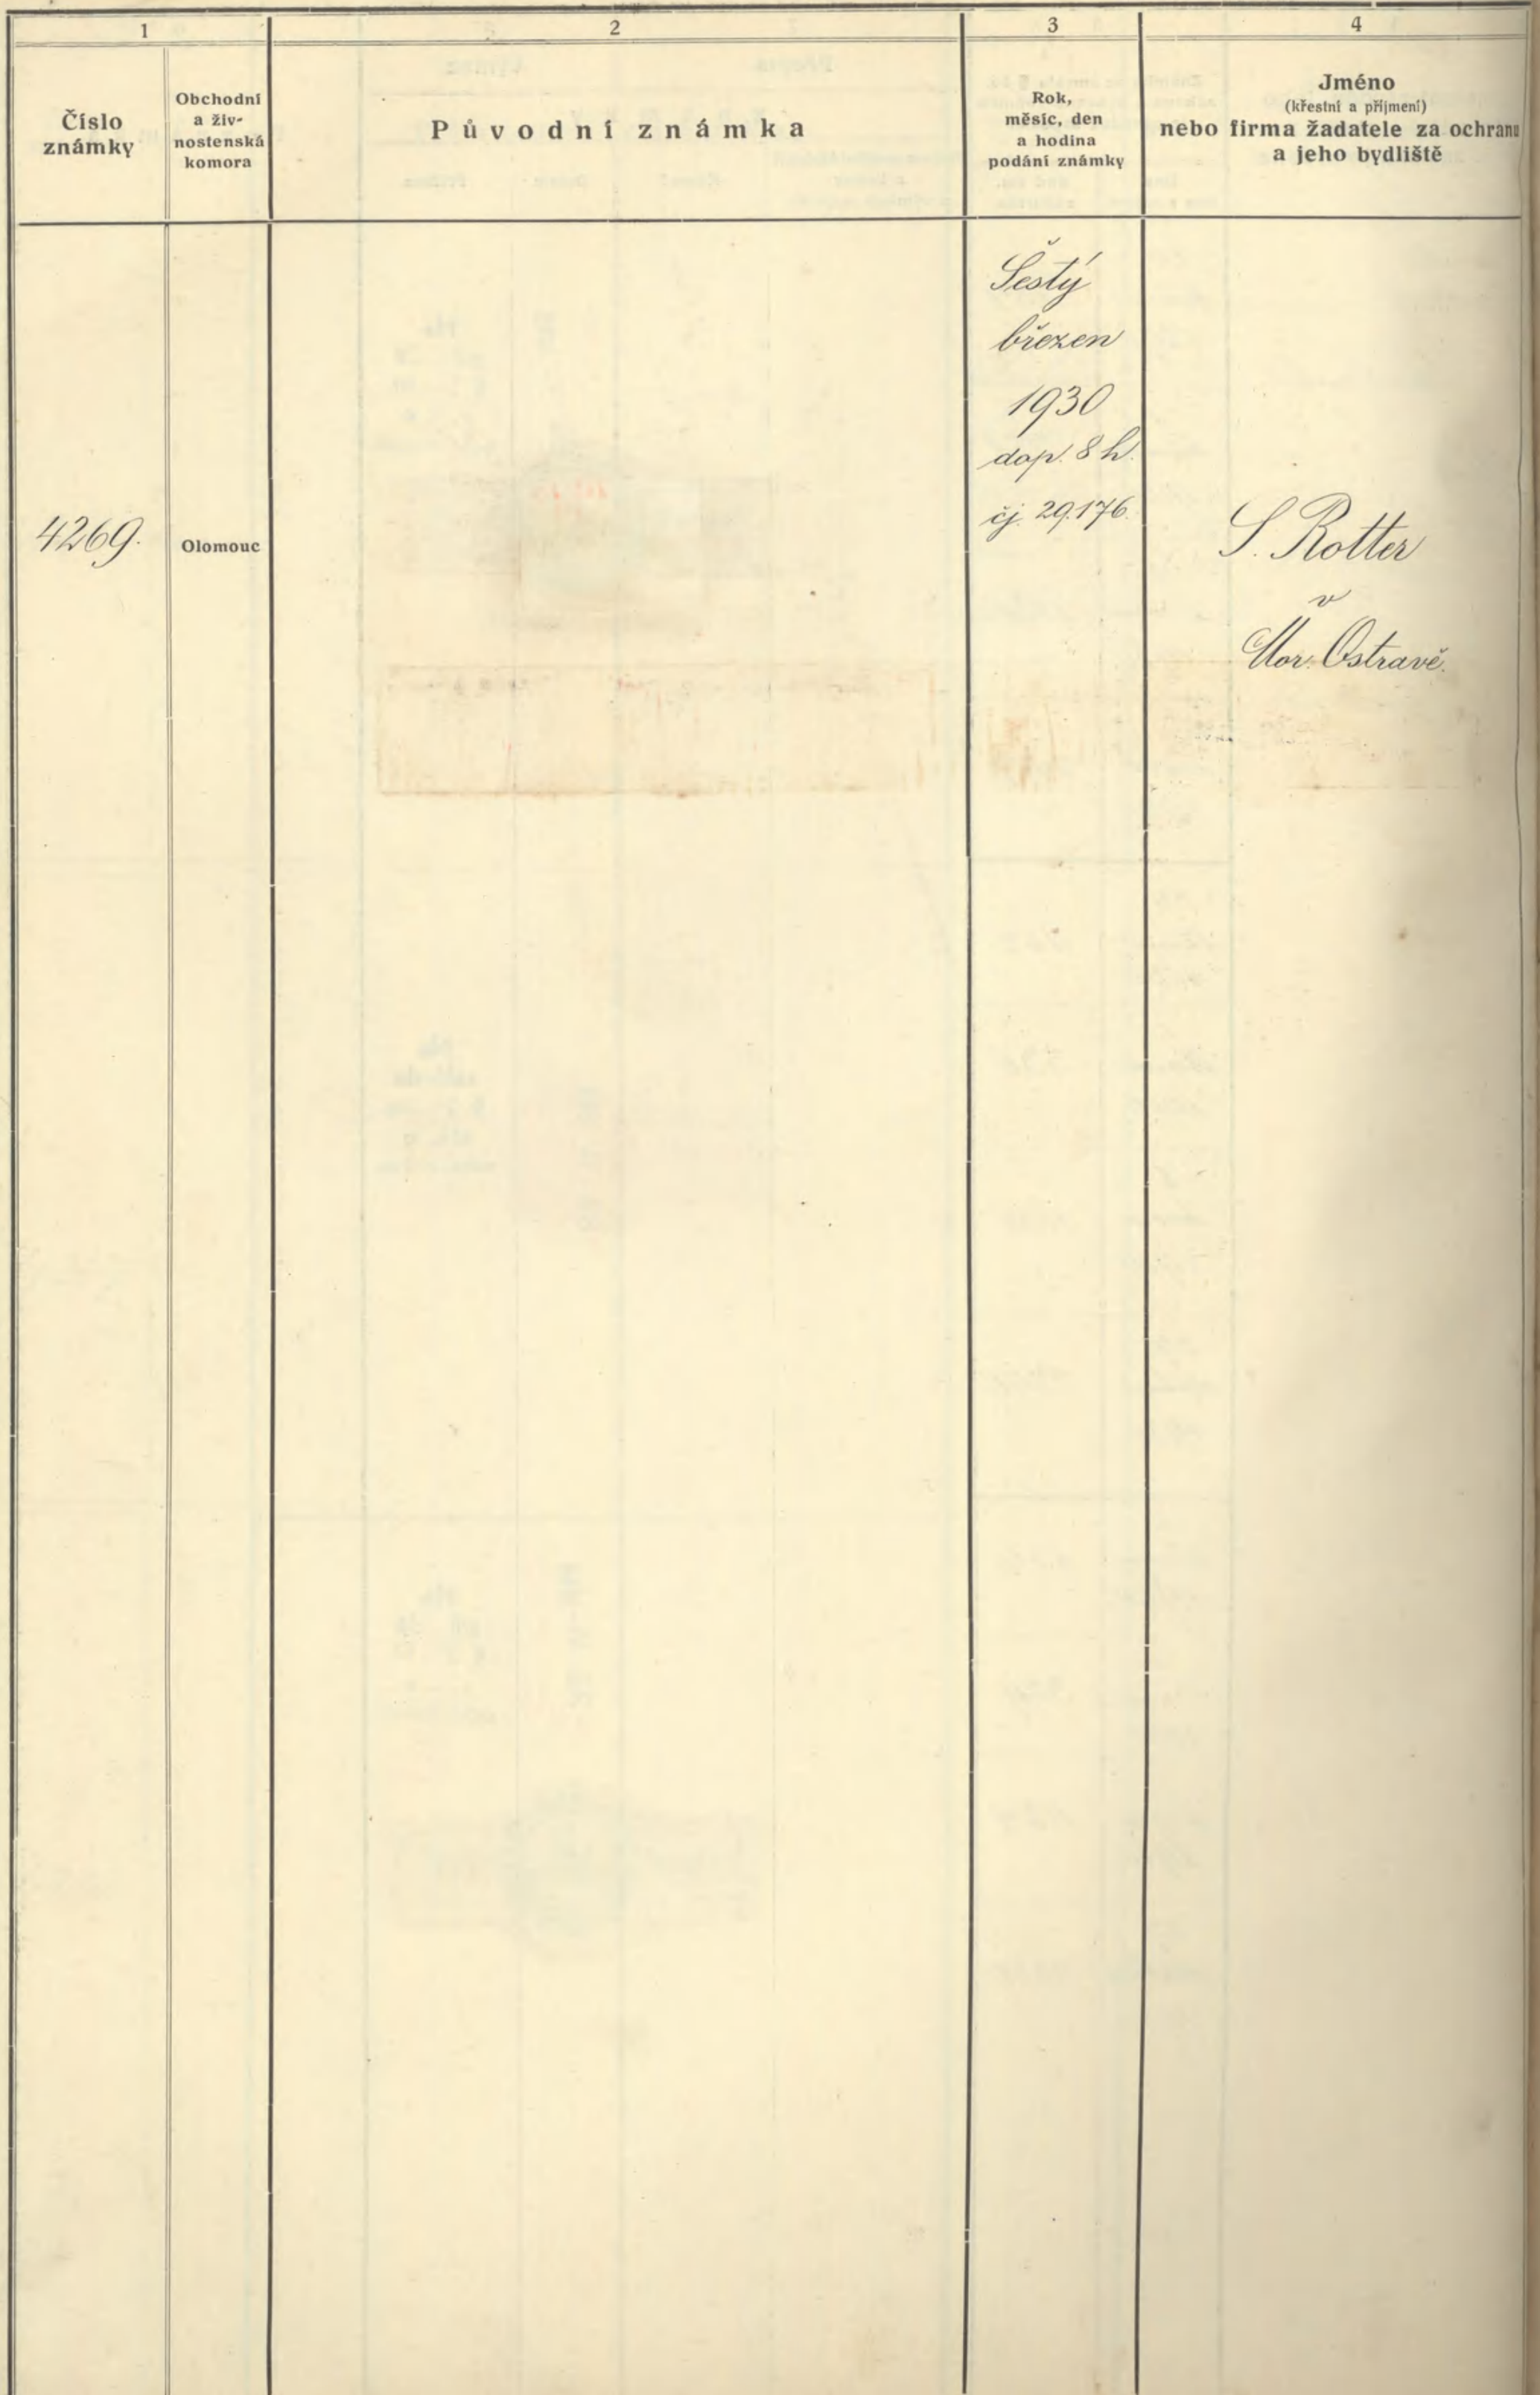 1
2
3
4
Číslo
známky
Obchodní
a živ-
nostenská
komora
Původní známka
Rok,
měsíc, den
a hodina
podání známky
Jméno
(křestní a příjmení)
nebo firma žadatele za ochranu
a jeho bydliště
4269.
Olomouc
Šestý
březen
1930
dop. 8 h.
čj. 29.176.
S. Rotter
v
Mor. Ostravě.